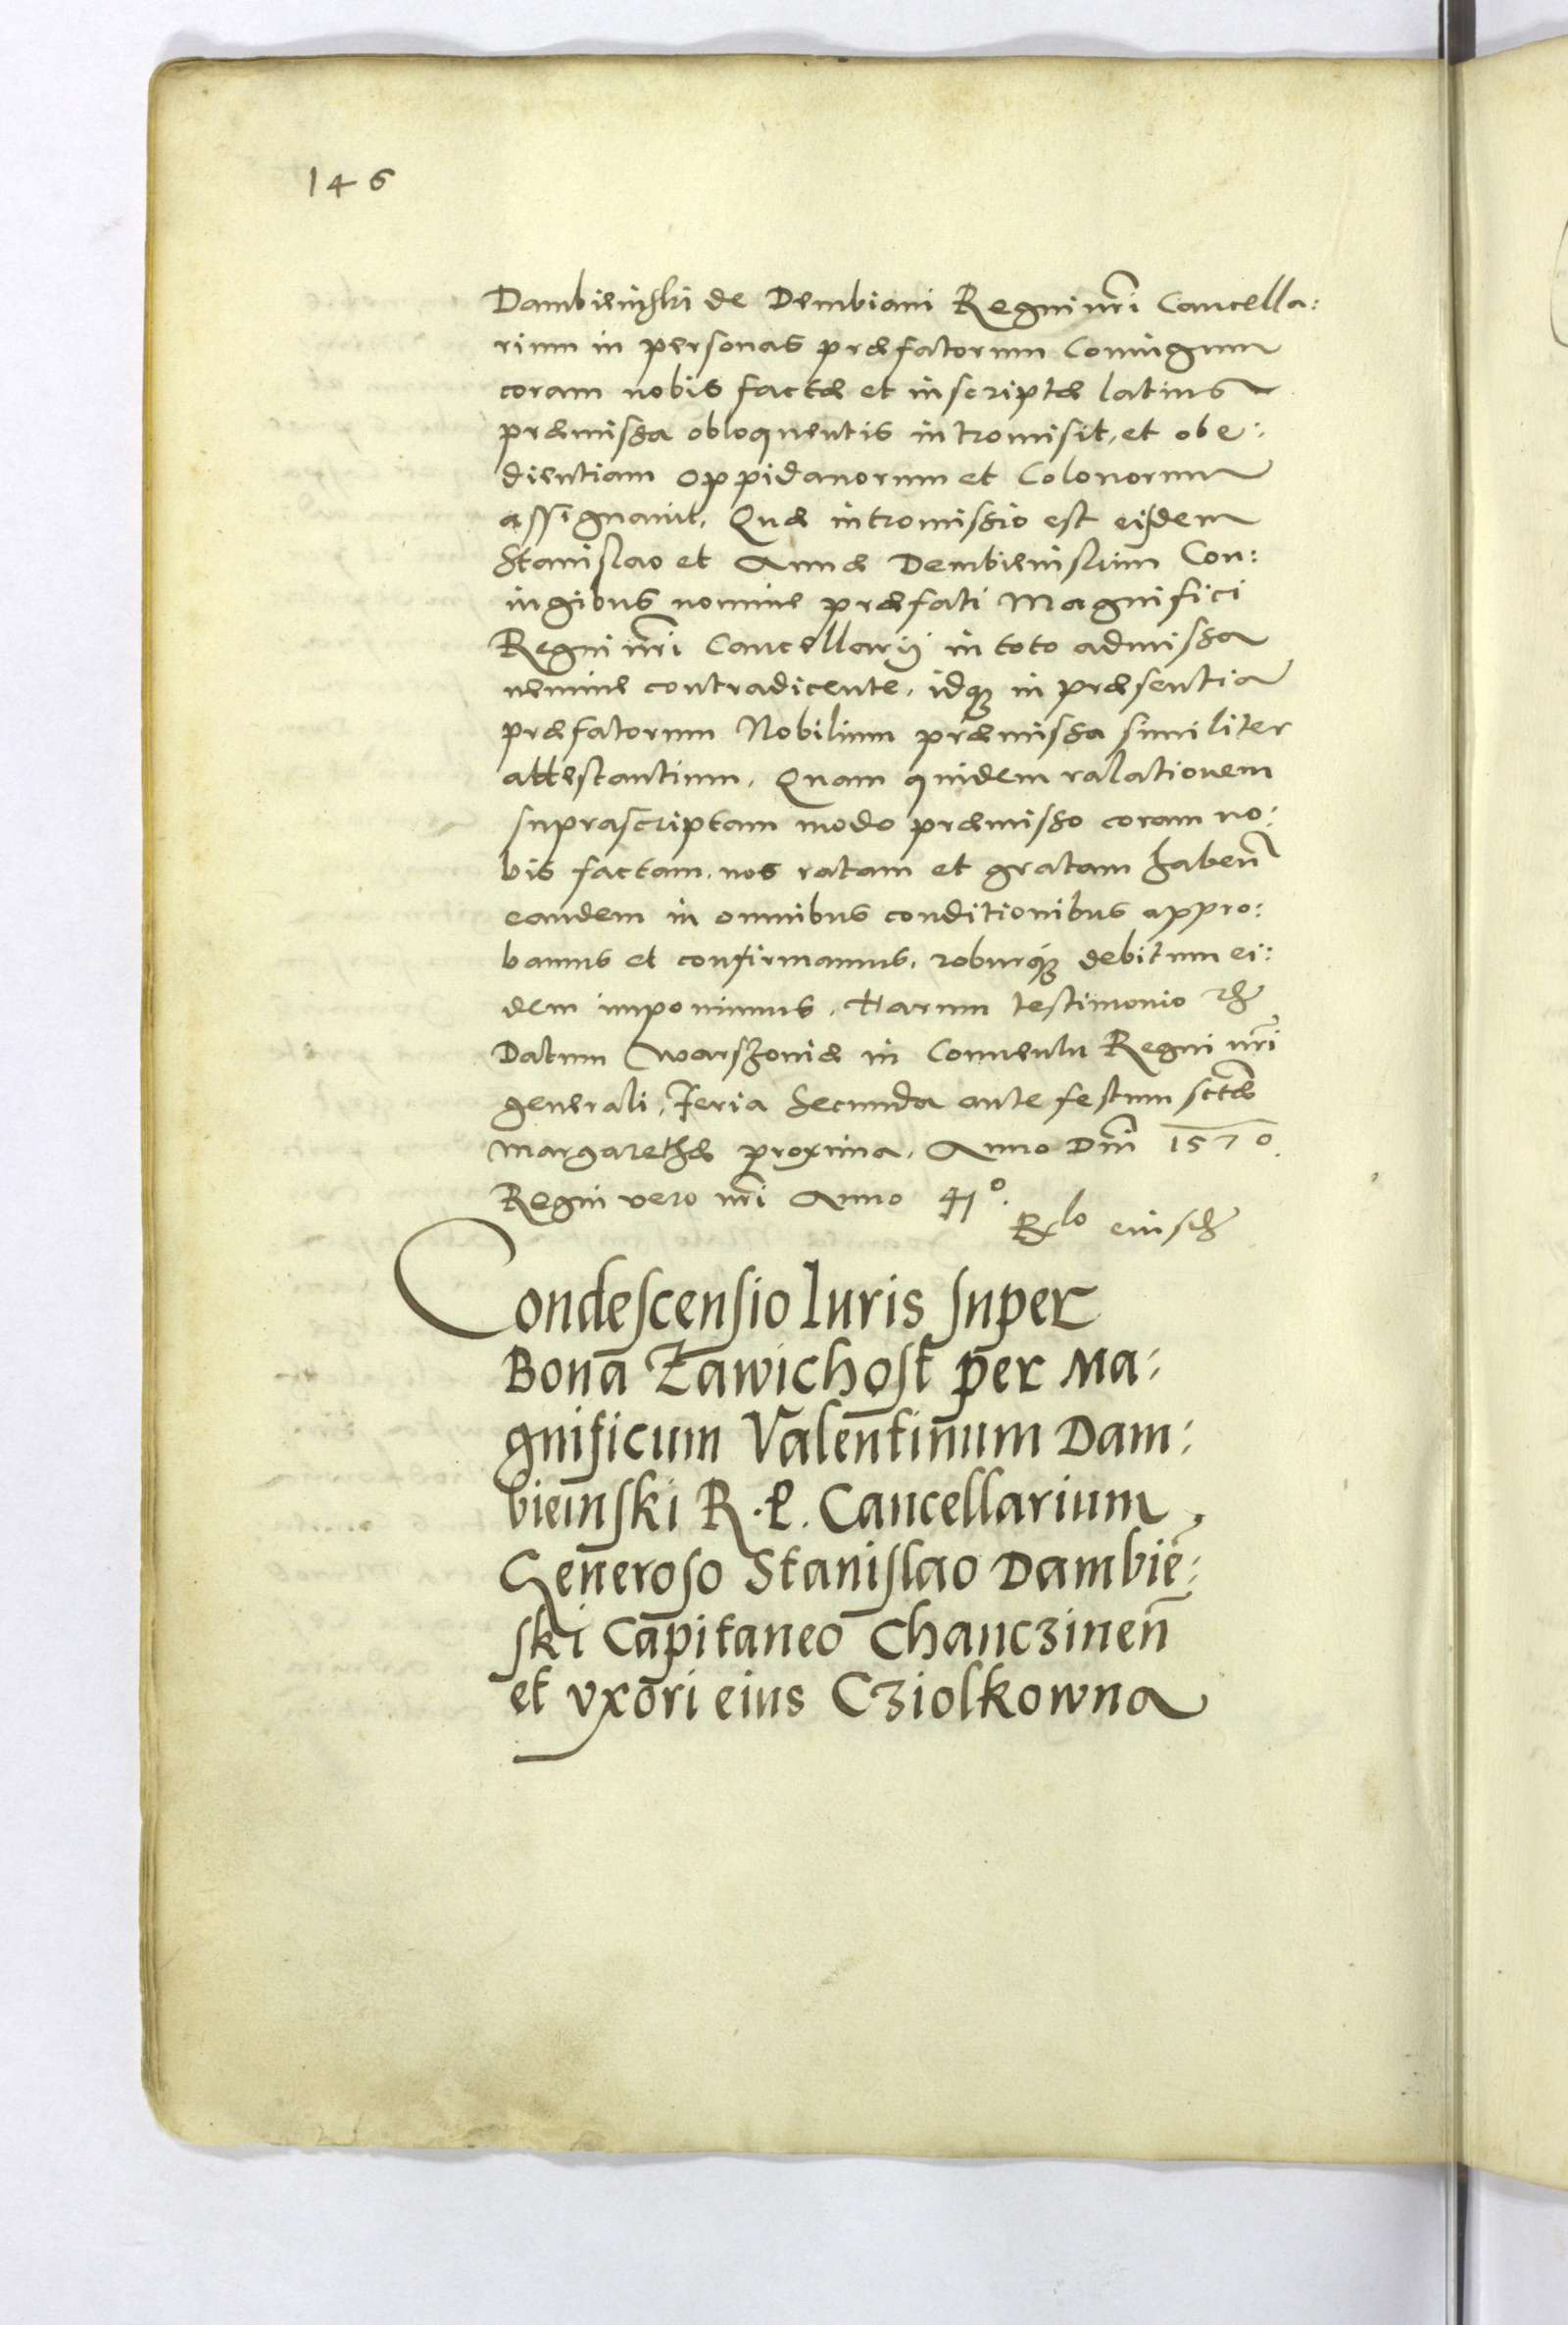 146
Dambieński de Dembiani Regni nr̃i Cancella:
rium in personas præfatorum Coniugum
coram nobis factæ et inscriptæ latius
præmissa obloquentis intromisit, et obe:
dientiam Oppidanorum et Colonorum
assignauit. Quæ intromissio est eisdem
Stanislao et Annæ Dembienisk̃im Con:
iugibus nomine præfati Magnifici
Regni nr̃i Cancellarij in toto admissa
nemine contradicente, idq; in præsentia
præfatorum Nobilium præmissa similiter
attestantium. Quam quidem ralationem
suprascriptam modo præmisso coram no:
bis factam, nos ratam et gratam habeñ
eandem in omnibus conditionibus appro:
bamus et confirmamus, roburq; debitum ei:
dem imponimus. Harum testimonio
Datum Warszouiæ in Conuentu Regni nr̃i
generali, Feria Secunda ante festum sctæ̃
Margarethæ proxima, Anno Dñi 1570.
Regni vero nr̃i Anno 41º.
Rlo eiusd
Condescensio Iuris super
Bona Zawichost per Ma:
gnificum Valentinum Dam:
bieinski R. P. Cancellarium,
Generoso Stanislao Dambień:
ski Capitaneo Chancʒineñ
et vxori eius Cʒiolkowna